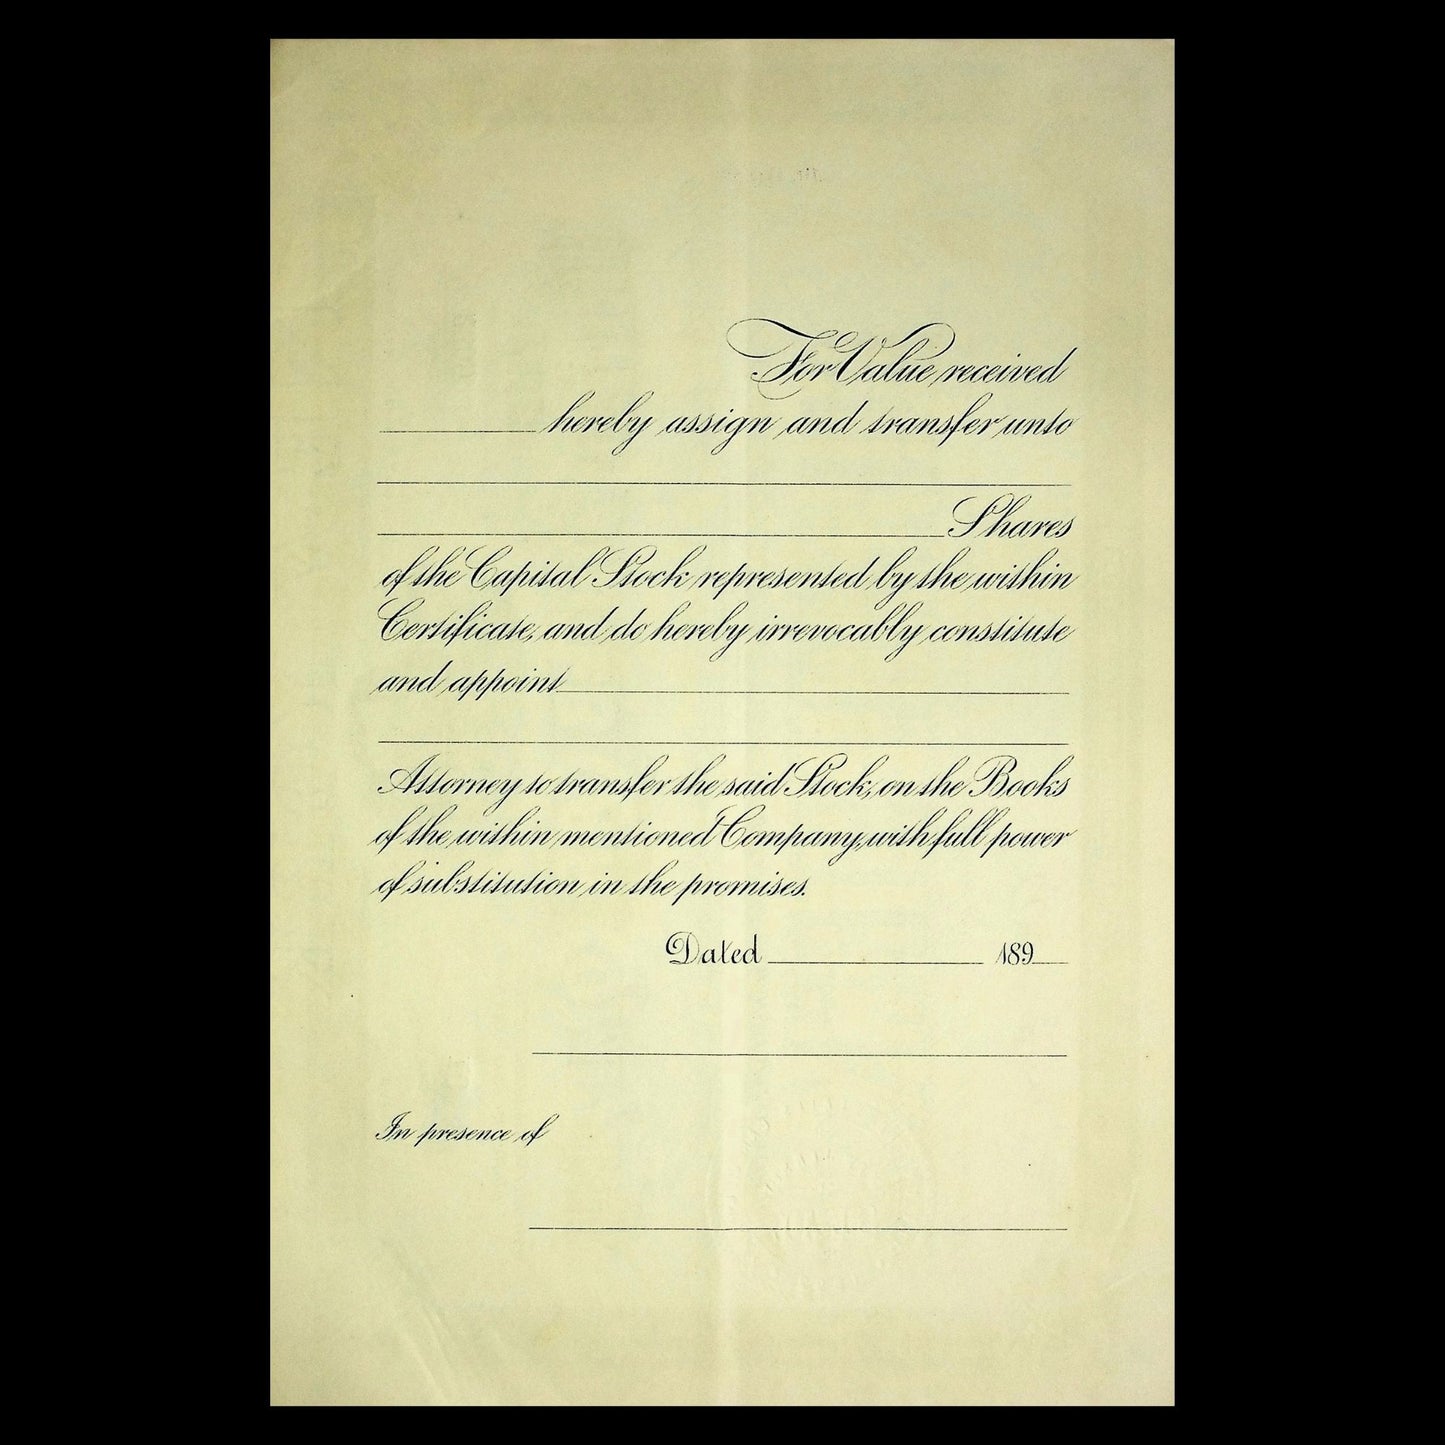 For Value received
hereby assign and transfer unto
Shares
of the Capital Stock represented by the within
Certificate, and do hereby irrevocably constitute
and appoint
Attorney to transfer the said Stock, on the Books
of the within mentioned Company, with full power
of substitution in the premises.
Dated 189
In presence of